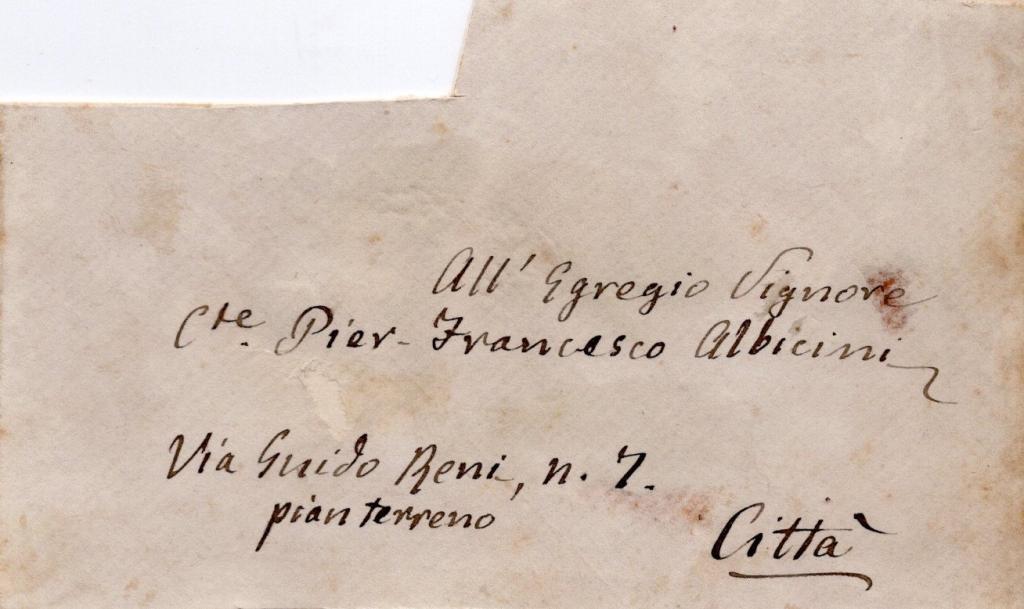 All' Egregio Signore
Cte. Pier-Francesco Albicini
Via Guido Reni, n. 7.
pian terreno
Città